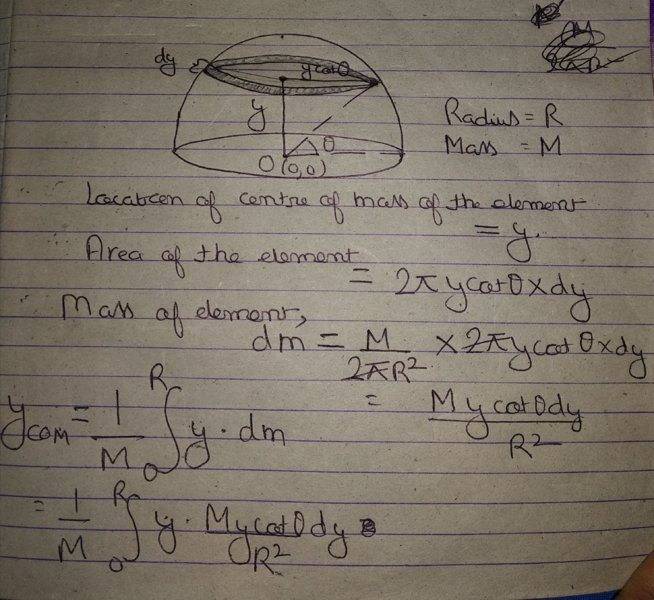 dy
y cot θ
y
θ
O (0,0)
Radius = R
Mass = M
Location of centre of mass of the element
= y.
Area of the element
= 2π y cot θ × dy
Mass of element,
dm = M/2πR² × 2π y cot θ × dy
= M y cot θ dy / R²
yCOM = 1/M ∫₀ᴿ y · dm
= 1/M ∫₀ᴿ y · M y cot θ dy / R²